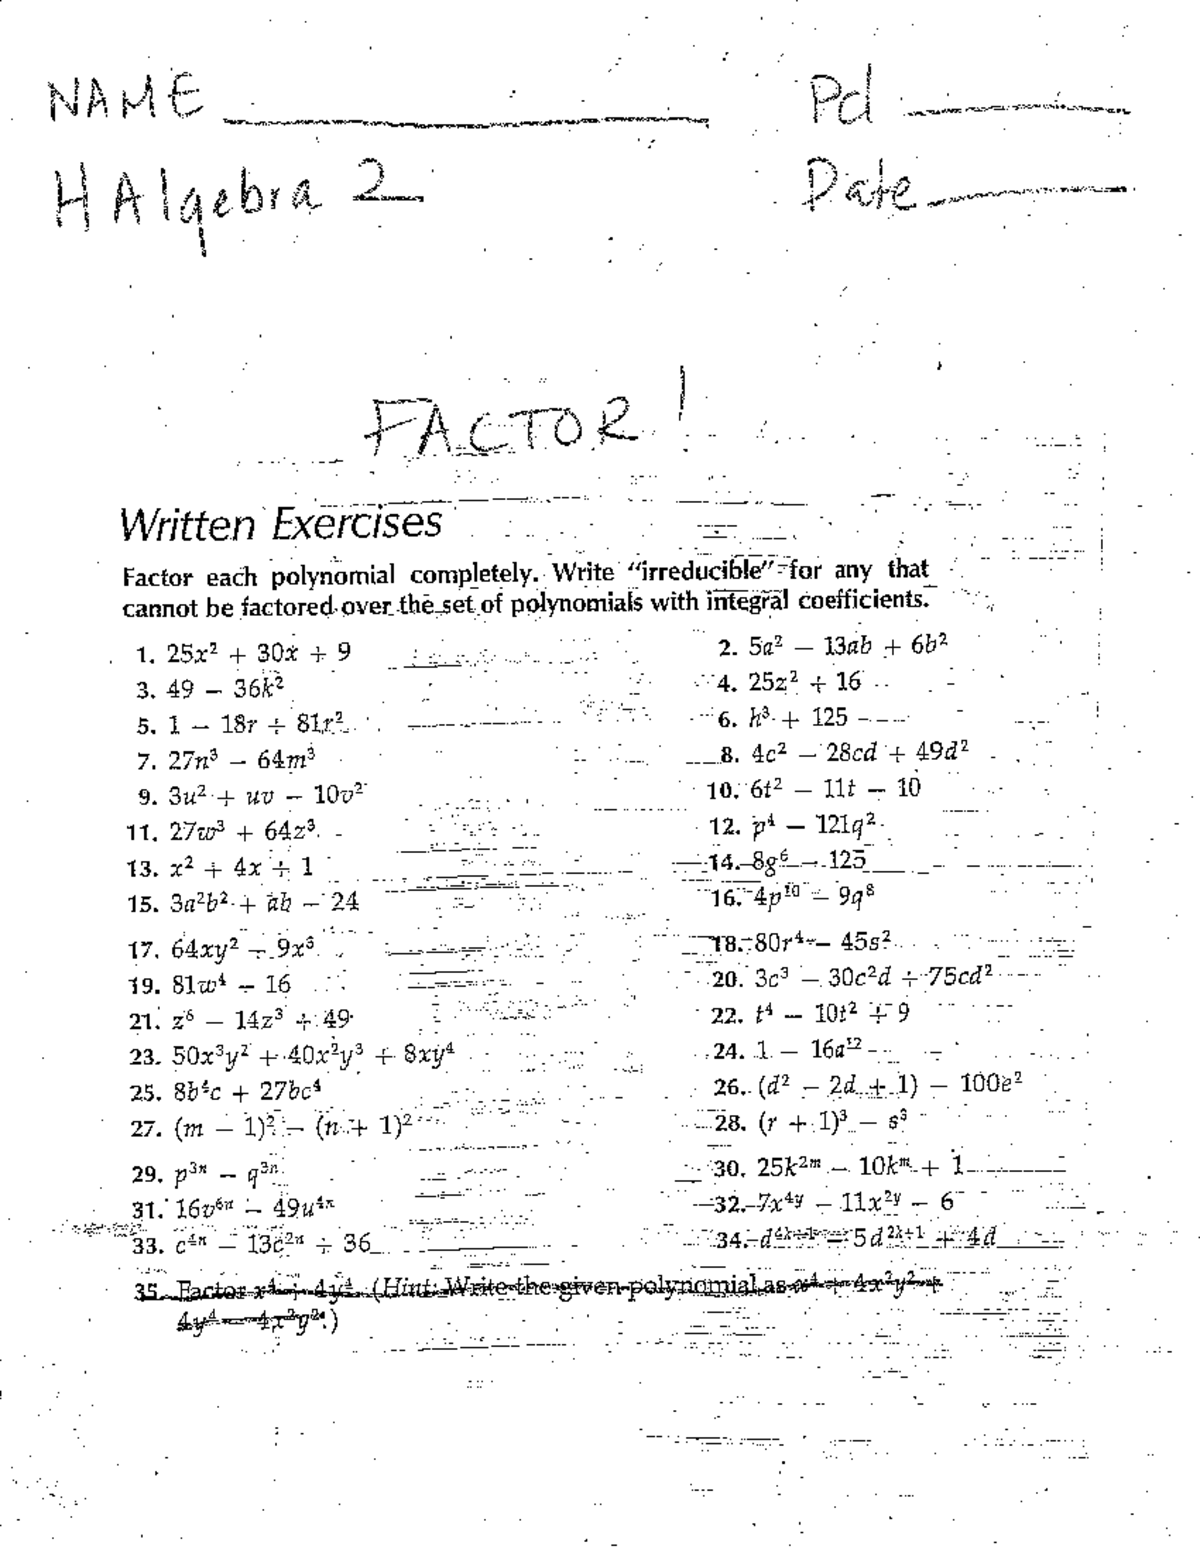 NAME Pd
H Algebra 2 Date
FACTOR!
Written Exercises
Factor each polynomial completely. Write "irreducible" for any that
cannot be factored over the set of polynomials with integral coefficients.
1. 25x² + 30x + 9
2. 5a² − 13ab + 6b²
3. 49 − 36k²
4. 25z² + 16
5. 1 − 18r + 81r²
6. h³ + 125
7. 27n³ − 64m³
8. 4c² − 28cd + 49d²
9. 3u² + uv − 10v²
10. 6t² − 11t − 10
11. 27w³ + 64z³
12. p⁴ − 121q²
13. x² + 4x + 1
14. 8g⁶ − 125
15. 3a²b² + ab − 24
16. 4p¹⁰ − 9q⁸
17. 64xy² − 9x³
18. 80r⁴ − 45s²
19. 81w⁴ − 16
20. 3c³ − 30c²d + 75cd²
21. z⁶ − 14z³ + 49
22. t⁴ − 10t² + 9
23. 50x³y² + 40x²y³ + 8xy⁴
24. 1 − 16a¹²
25. 8b⁴c + 27bc⁴
26. (d² − 2d + 1) − 100e²
27. (m − 1)² − (n + 1)²
28. (r + 1)³ − s³
29. p³ⁿ − q³ⁿ
30. 25k²ᵐ − 10kᵐ + 1
31. 16v⁶ⁿ − 49u⁴ⁿ
32. 7x⁴ʸ − 11x²ʸ − 6
33. c⁴ⁿ − 13c²ⁿ + 36
34. d⁴ᵏ⁺¹ − 5d²ᵏ⁺¹ + 4d
35. Factor x⁴ + 4y⁴. (Hint: Write the given polynomial as x⁴ + 4x²y² +
4y⁴ − 4x²y².)